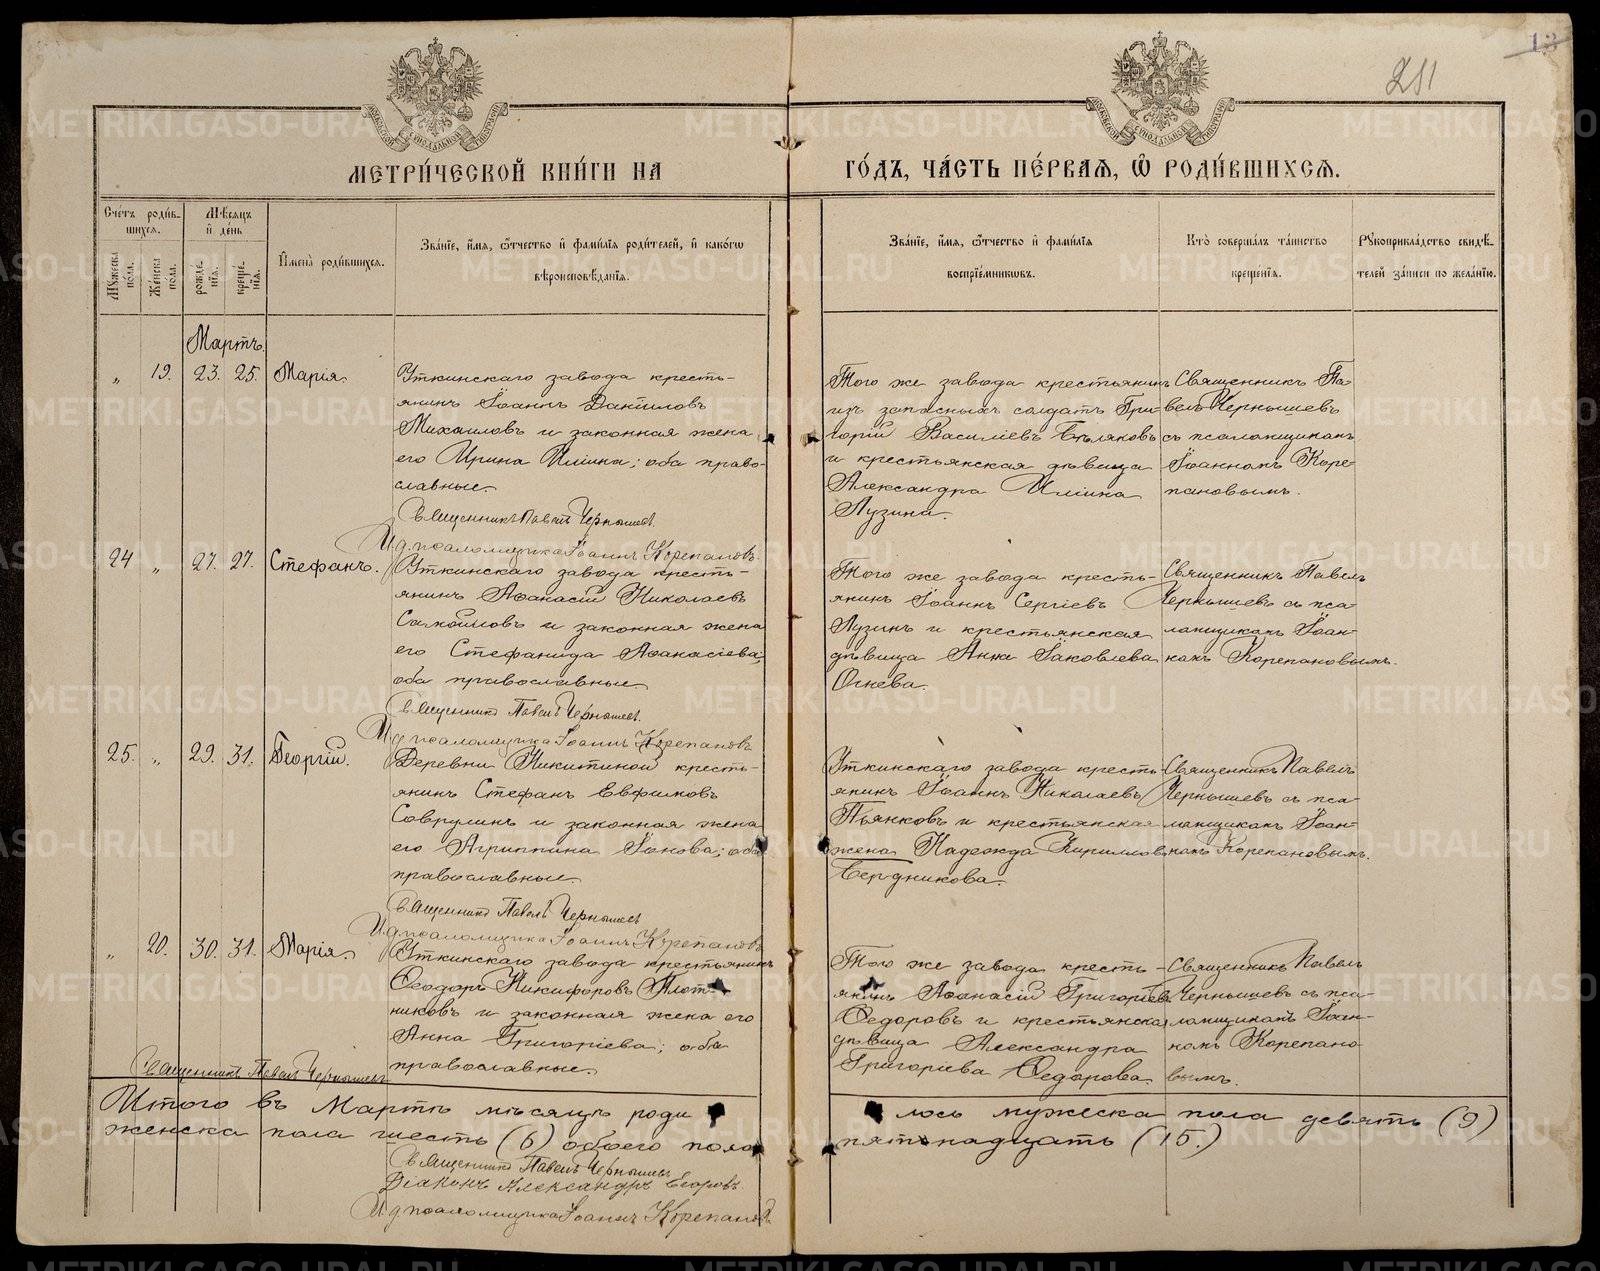 13
211
МЕТРИ́ЧЕСКОЙ КНИ́ГИ НА ГО́ДЪ, ЧА́СТЬ ПЕ́РВАѦ, Ѽ РОДИ́ВШИХСѦ.
Сче́тъ роди́в-
шихсѧ.
Мꙋжеска по́ла.
Же́нска по́ла.
Мѣ́сѧцъ
и́ де́нь
рожде́-
нїѧ.
креще́-
нїѧ.
И҆мена̀ роди́вшихсѧ.
Зва́нїе, и҆́мѧ, ѻ҆́тчество и҆ фами́лїѧ роди́телей, и҆ како́гѡ
вѣроисповѣ́данїѧ.
Зва́нїе, и҆́мѧ, ѻ҆́тчество и҆ фами́лїѧ
воспрїе́мникѡвъ.
Кто̀ соверша́лъ та́инство
креще́нїѧ.
Рꙋкоприкла́дство свидѣ́-
телей за́писи по жела́нїю.
Мартъ.
„ 19. 23. 25. Марія.
Уткинскаго завода кресть-
янинъ Іоаннъ Даніиловъ
Михаиловъ и законная жена
его Ирина Иліина; оба право-
славные.
Священникъ Павелъ Чернышевъ.
И. д. псаломщика Іоаннъ Корепановъ.
Того же завода крестьянинъ
изъ запасныхъ солдатъ Гри-
горій Василіевъ Бѣляковъ
и крестьянская дѣвица
Александра Иліина
Лузина.
Священникъ Па-
велъ Чернышевъ
съ псаломщикомъ
Іоанномъ Коре-
пановымъ.
24 „ 27. 27. Стефанъ.
Уткинскаго завода кресть-
янинъ Аѳанасій Николаевъ
Самойловъ и законная жена
его Стефанида Аѳанасіева;
оба православные.
Священникъ Павелъ Чернышевъ.
И. д. псаломщика Іоаннъ Корепановъ
Того же завода кресть-
янинъ Іоаннъ Сергіевъ
Лузинъ и крестьянская
дѣвица Анна Іаковлева
Огнева.
Священникъ Павелъ
Чернышевъ съ пса-
ломщикомъ Іоан-
номъ Корепановымъ.
25. „ 29. 31. Георгій.
Деревни Никитиной кресть-
янинъ Стефанъ Евфимовъ
Соврулинъ и законная жена
его Агриппина Іонова; оба
православные.
Священникъ Павелъ Чернышевъ
И. д. псаломщика Іоаннъ Корепановъ
Уткинскаго завода кресть-
янинъ Іоаннъ Николаевъ
Пьянковъ и крестьянская
жена Надежда Кириллов
Бердникова.
Священникъ Павелъ
Чернышевъ съ пса-
ломщикомъ Іоан-
номъ Корепановымъ.
„ 20. 30. 31. Марія.
Уткинскаго завода крестьянинъ
Ѳеодоръ Никифоровъ Плот-
никовъ и законная жена его
Анна Григоріева; оба
православные.
Священникъ Павелъ Чернышевъ
Того же завода кресть-
янинъ Аѳанасій Григоріевъ
Ѳедоровъ и крестьянская
дѣвица Александра
Григоріева Ѳедорова.
Священникъ Павелъ
Чернышевъ съ пса-
ломщикомъ Іоан-
номъ Корепано-
вымъ.
Итого въ Мартѣ мѣсяцѣ роди лось мужеска пола девять (9)
женска пола шесть (6) обоего пола пятьнадцать (15.)
Священникъ Павелъ Чернышевъ
Діаконъ Александръ Егоровъ.
И. д. псаломщика Іоаннъ Корепановъ
METRIKI.GASO-URAL.RU